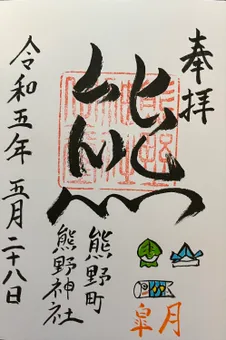 奉拝
熊
熊野町
熊野神社
皐月
令和五年 五月二十八日